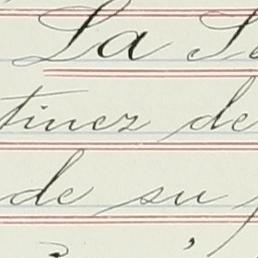 La
tinez de
de su